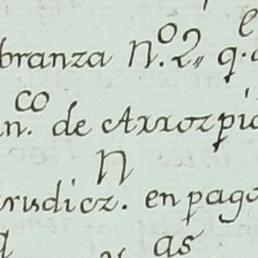 branza n.º 2,, q.
n.co de Arrozpid
rudicz.n en pago
as